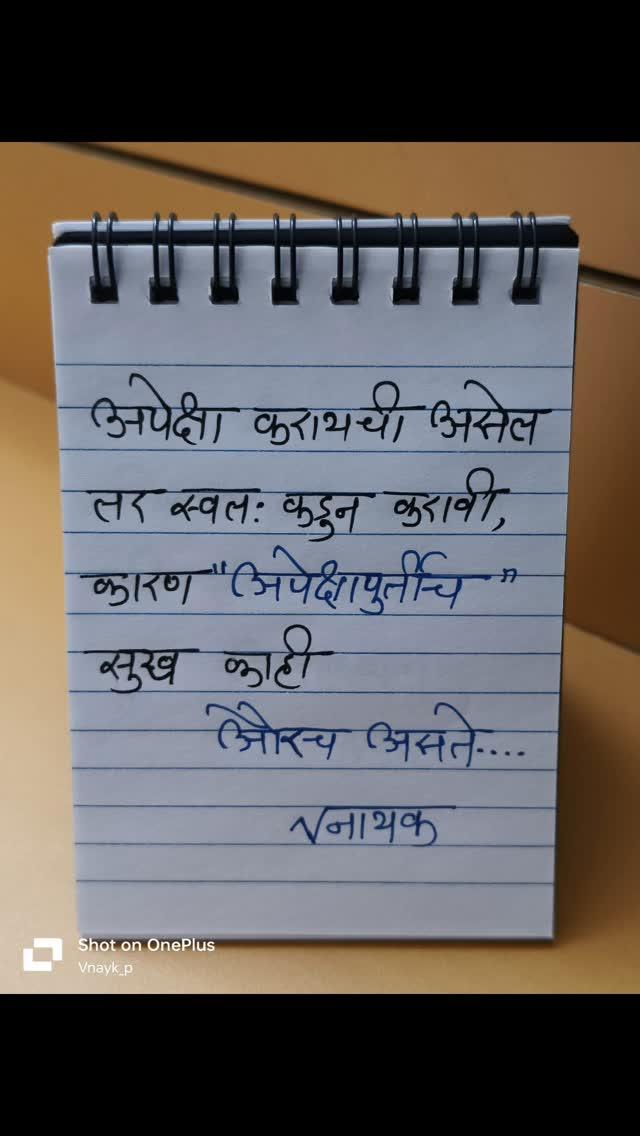 अपेक्षा करायची असेल
तर स्वतः कडुन करावी,
कारण "अपेक्षापुर्तीच"
सुख काही
औरच असते....
√नायक
Shot on OnePlus
Vnayk_p